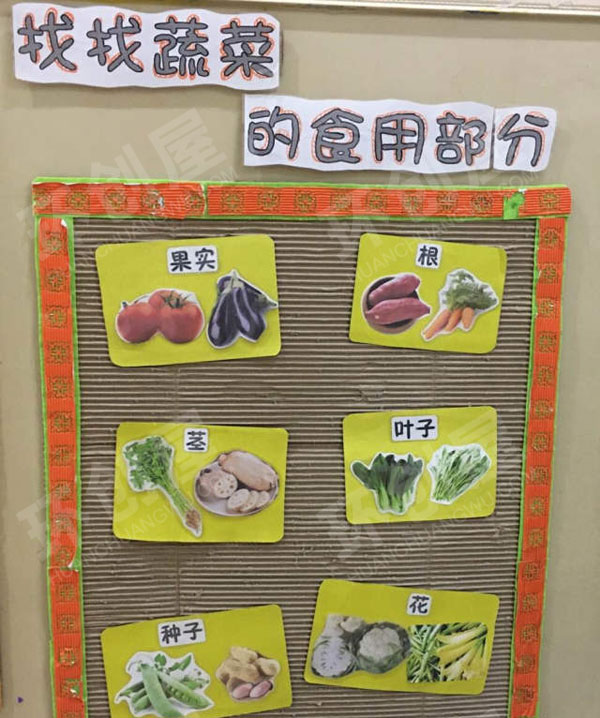 找找蔬菜
的食用部分
果实
根
茎
叶子
种子
花
环创屋